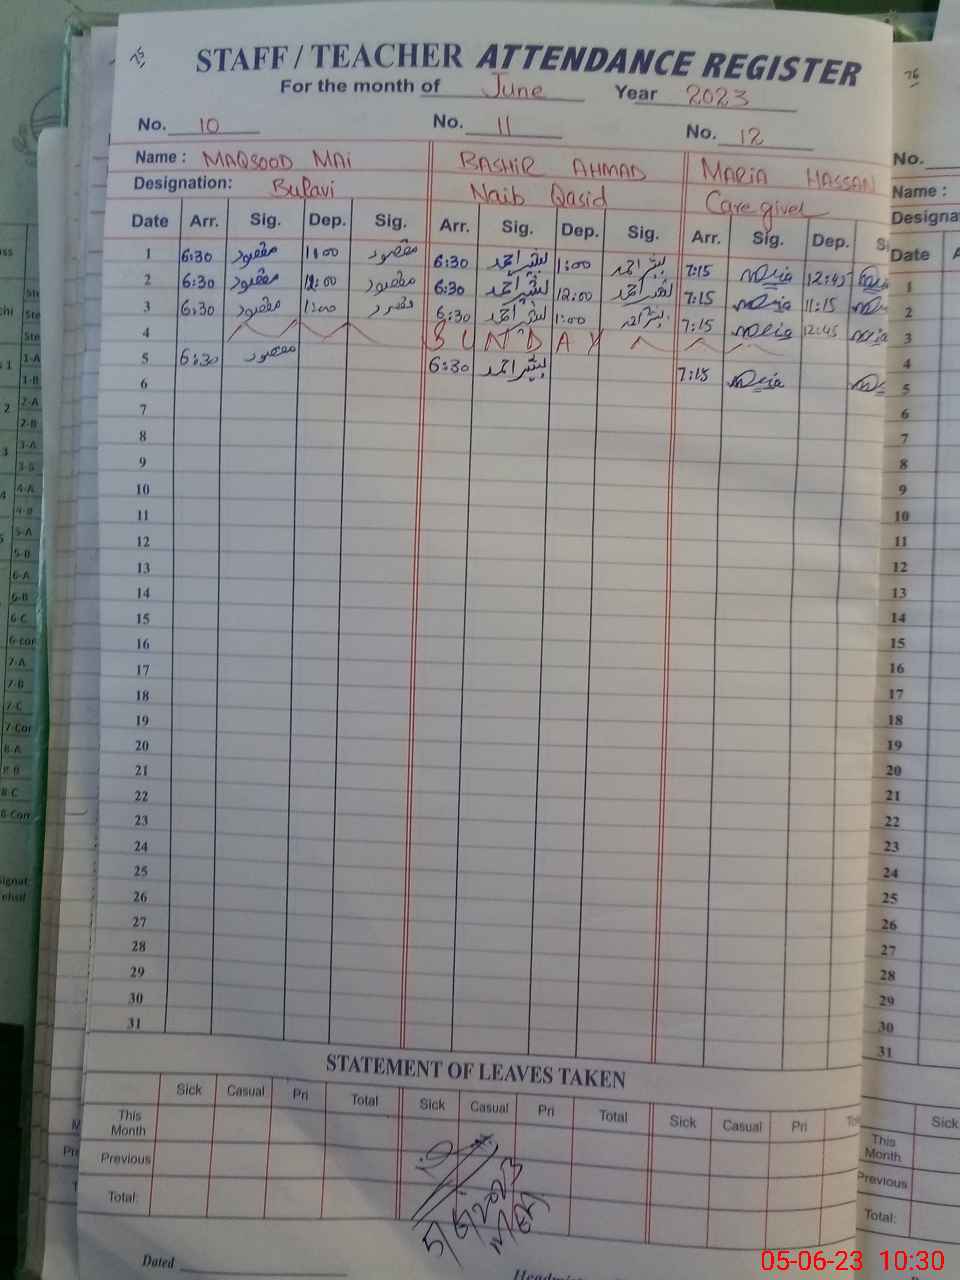 STAFF / TEACHER ATTENDANCE REGISTER
For the month of June Year 2023
No. 10 No. 11 No. 12
Name : MAQSOOD MAI BASHIR AHMAD MARIA HASSAN
Designation: Bulavi Naib Qasid Care giver
Date Arr. Sig. Dep. Sig. Arr. Sig. Dep. Sig. Arr. Sig. Dep. S
1 6:30 مقصود 11:00 مقصود 6:30 بشیر احمد 1:00 بشیر احمد 7:15 Maria 12:45 Maria
2 6:30 مقصود 12:00 مقصود 6:30 بشیر احمد 12:00 بشیر احمد 7:15 Maria 11:15
3 6:30 مقصود 1:00 مقصود 6:30 بشیر احمد 1:00 بشیر احمد 7:15 Maria 12:45 Maria
4 SUNDAY
5 6:30 مقصود 6:30 بشیر احمد 7:15 Maria
6
7
8
9
10
11
12
13
14
15
16
17
18
19
20
21
22
23
24
25
26
27
28
29
30
31
STATEMENT OF LEAVES TAKEN
Sick Casual Pri Total Sick Casual Pri Total Sick Casual Pri
This Month
Previous
Total:
5/6/2023
Dated
No.
Name :
Designa
Date A
1
2
3
4
5
6
7
8
9
10
11
12
13
14
15
16
17
18
19
20
21
22
23
24
25
26
27
28
29
30
31
Sick
This Month
Previous
Total:
1-A
1-B
2-A
2-B
3-A
3-B
4-A
4-B
5-A
5-B
6-A
6-B
6-C
6-cor
7-A
7-B
7-C
7-Cor
8-A
8-B
8-C
8-Corr
05-06-23 10:30